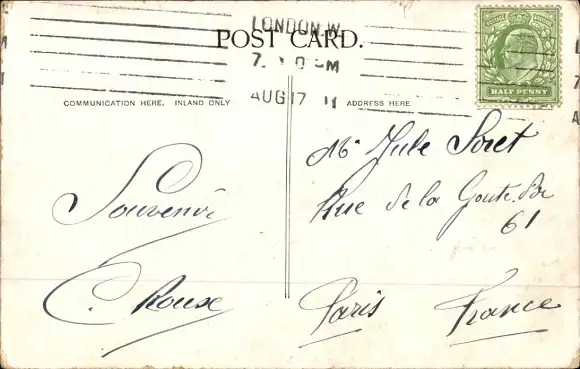 LONDON.W.
POST CARD.
AUG 17 11
COMMUNICATION HERE. INLAND ONLY
ADDRESS HERE.
POSTAGE REVENUE
HALF PENNY
Mr Jule Soret
Rue de la Goute. d'or
61
Paris France
Souvenir
C. Roux